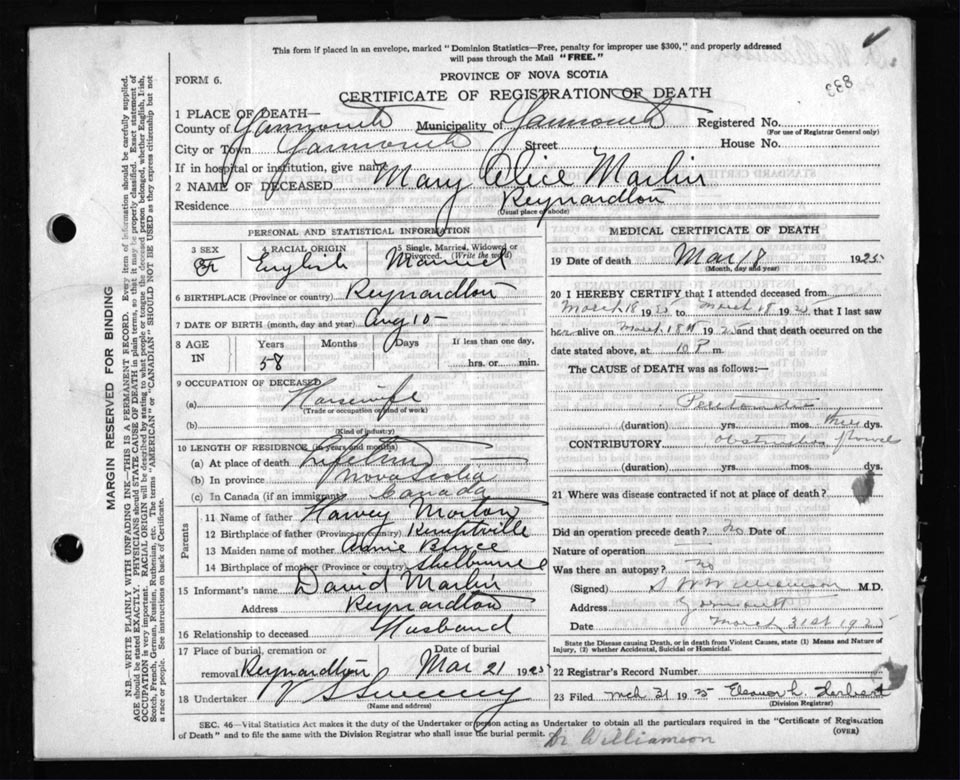 This form if placed in an envelope, marked "Dominion Statistics—Free, penalty for improper use $300," and properly addressed
will pass through the Mail "FREE."
PROVINCE OF NOVA SCOTIA
FORM 6.
CERTIFICATE OF REGISTRATION OF DEATH
833
1 PLACE OF DEATH—
County of Yarmouth Municipality of Yarmouth Registered No.
(For use of Registrar General only)
City or Town Yarmouth Street House No.
If in hospital or institution, give name
2 NAME OF DECEASED Mary Alice Marlin
Residence Reynardton
(Usual place of abode)
PERSONAL AND STATISTICAL INFORMATION
3 SEX 4 RACIAL ORIGIN 5 Single, Married, Widowed or Divorced. (Write the word)
F English Married
6 BIRTHPLACE (Province or country) Reynardton
7 DATE OF BIRTH (month, day and year) Aug 10-
8 AGE IN Years Months Days If less than one day,
58 hrs. or min.
9 OCCUPATION OF DECEASED
(a) Housewife
(Trade or occupation or kind of work)
(b)
(Kind of industry)
10 LENGTH OF RESIDENCE (in years and months)
(a) At place of death Lifetime
(b) In province Nova Scotia
(c) In Canada (if an immigrant) Canada
Parents
11 Name of father Harvey Morton
12 Birthplace of father (Province or country) Kemptville
13 Maiden name of mother Annie
14 Birthplace of mother (Province or country) Shelburne
15 Informant's name David Marlin
Address Reynardton
16 Relationship to deceased Husband
17 Place of burial, cremation or Date of burial
removal Reynardton Mar 21 1925
18 Undertaker V S Sweeny
(Name and address)
MEDICAL CERTIFICATE OF DEATH
19 Date of death Mar 18 1925
(Month, day and year)
20 I HEREBY CERTIFY that I attended deceased from
March 18 1925 to March 18 1925 that I last saw
her alive on March 18th 1925 and that death occurred on
date stated above, at 10 P m.
The CAUSE of DEATH was as follows:—
Peritonitis
(duration) yrs. mos. three dys.
CONTRIBUTORY obstruction of bowel
(duration) yrs. mos. dys.
21 Where was disease contracted if not at place of death?
Did an operation precede death? no Date of
Nature of operation
Was there an autopsy? No
(Signed) S W Williamson M.D.
Address Yarmouth
Date March 31st 1925
State the Disease causing Death, or in death from Violent Causes, state (1) Means and Nature of
Injury, (2) whether Accidental, Suicidal or Homicidal.
22 Registrar's Record Number
23 Filed Mch 31 1925 Eleanor L. Herbert
(Division Registrar)
SEC. 46—Vital Statistics Act makes it the duty of the Undertaker or person acting as Undertaker to obtain all the particulars required in the "Certificate of Registration
of Death" and to file the same with the Division Registrar who shall issue the burial permit. (OVER)
Dr Williamson
MARGIN RESERVED FOR BINDING
N.B.—WRITE PLAINLY WITH UNFADING INK—THIS IS A PERMANENT RECORD. Every item of information should be carefully supplied.
AGE should be stated EXACTLY. PHYSICIANS should STATE CAUSE OF DEATH in plain terms, so that it may be properly classified. Exact statement of
OCCUPATION is very important. RACIAL ORIGIN will be described by stating to what people or tongue the deceased person belonged, whether English, Irish,
Scotch, French, German, Russian, Ruthenian, etc. The terms "AMERICAN" or "CANADIAN" SHOULD NOT BE USED as they express citizenship but not
a race or people. See instructions on back of Certificate.